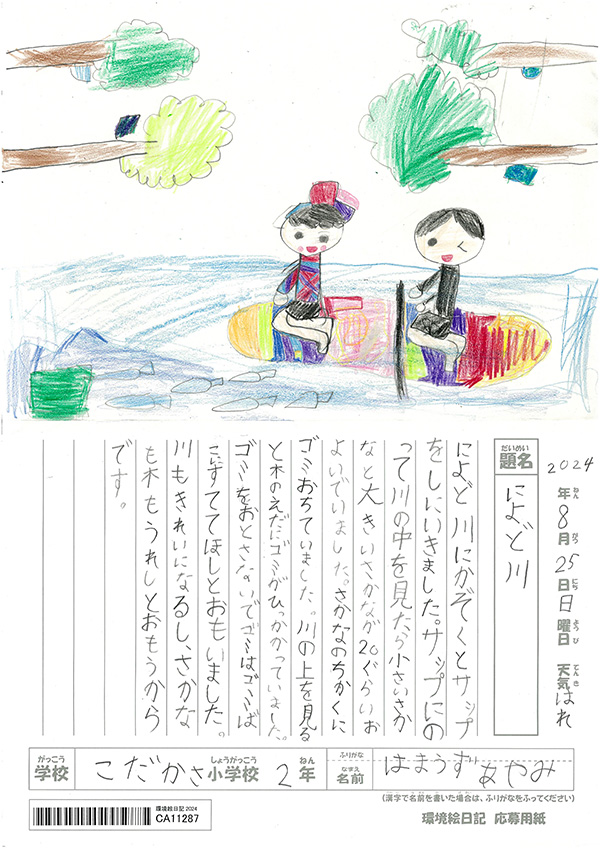 2024年8月25日日曜日 天気はれ
ねん がつ にち ようび てんき
だいめい
題名 によど川
によど川にかぞくとサップ
をしにいきました。サップにの
って川の中を見たら小さいさか
なと大きいさかなが20ぐらいお
よいでいました。さかなのちかくに
ゴミおちていました。川の上を見る
と木のえだにゴミがひっかかっていました。
ゴミをおとさないでゴミはゴミば
こにすててほしとおもいました。
川もきれいになるし、さかな
も木もうれしとおもうから
です。
がっこう しょうがっこう ねん ふりがな なまえ
学校 こだかさ小学校 2年 名前 はまうず あやみ
(漢字で名前を書いた場合は、ふりがなをふってください)
環境絵日記2024
CA11287
環境絵日記 応募用紙